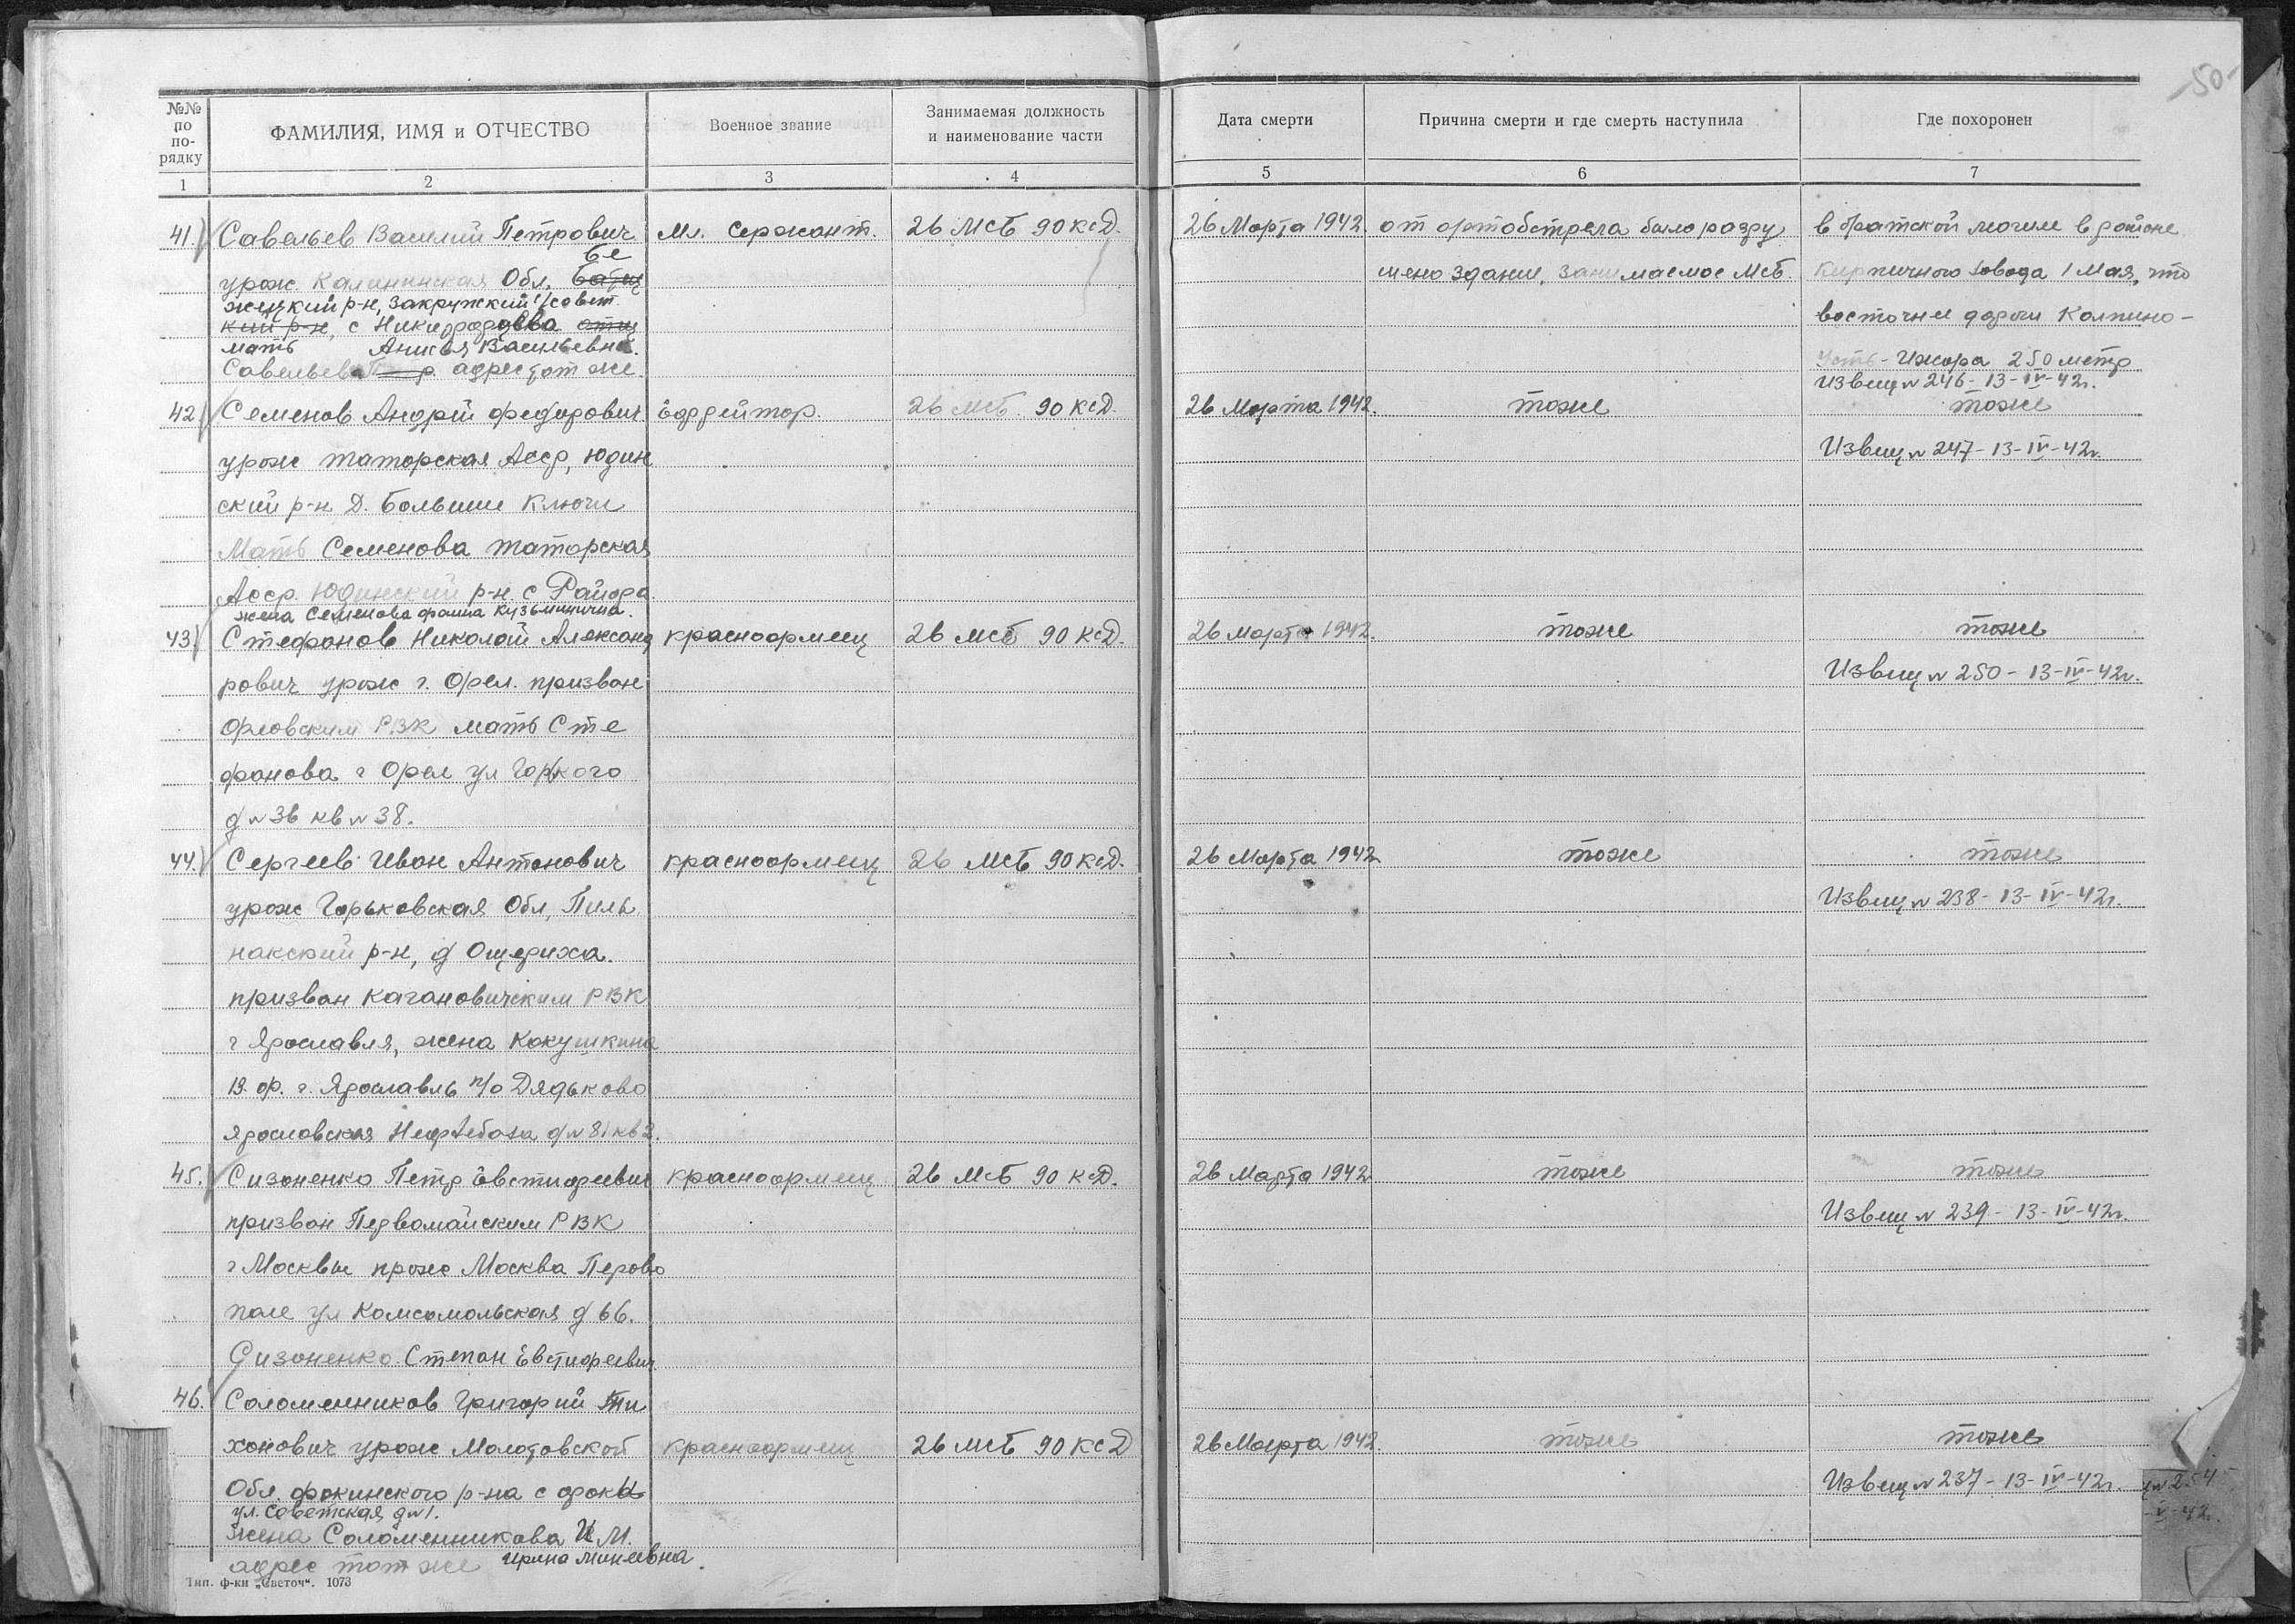 50
№№ по порядку
ФАМИЛИЯ, ИМЯ и ОТЧЕСТВО
Военное звание
Занимаемая должность и наименование части
Дата смерти
Причина смерти и где смерть наступила
Где похоронен
1 2 3 4 5 6 7
41. Савельев Василий Петрович Мл. Сержант. 26 МСБ 90 КСД. 26 Марта 1942. от артобстрела было разру в братской могиле в районе
Бе
урож. Калининская Обл, шено здание, занимаемое МСБ. Кирпичного завода 1 Мая, что
жицкий р-н, Закружский с/совет
кий р-н, с Никифорово восточнее дороги Колпино-
мать Анисья Васильевна.
Савельева адрес тот же. Усть-Ижора 250 метр
Извещ № 246-13-IV-42г.
42. Семенов Андрей Федорович Ефрейтор. 26 МСБ. 90 КСД. 26 Марта 1942. тоже тоже
урож Татарская Асср, Юдин Извещ № 247-13-IV-42г.
ский р-н Д. Большие Ключи
Мать Семенова Татарская
Асср. Юдинский р-н. с Раифа
жена Семенова Фаина Кузьминична.
43. Стефанов Николай Александ красноармеец 26 МСБ 90 КСД. 26 марта 1942. тоже тоже
рович урож г. Орел. призван Извещ № 250-13-IV-42г.
Орловским РВК мать Сте
фанова г Орел ул Горького
д № 36 кв № 38.
44. Сергеев Иван Антонович красноармеец 26 МСБ 90 КСД. 26 Марта 1942 тоже тоже
урож Горьковская Обл, Пиль Извещ № 238-13-IV-42г.
накский р-н, д Ощериха.
призван Кагановическим РВК
г Ярославля, жена Кокушкина
В. Ф. г. Ярославль п/о Дядьково
Ярославская Нефтебаза д № 81 кв 2.
45. Сизоненко Петр Евстифеевич красноармеец 26 МСБ 90 КСД. 26 Марта 1942 тоже тоже
призван Первомайским РВК Извещ № 239-13-IV-42г.
г Москвы прож Москва Перово
поле ул Комсомольская д 66.
Сизоненко Степан Евстифеевич
46. Соломенников Григорий Ти
хонович урож Молотовской красноармеец 26 МСБ 90 КСД 26 Марта 1942. тоже тоже
Обл, Фокинского р-на с Фоки Извещ № 237-13-IV-42г. № 254
ул. Советская д № 1. -V-42г.
жена Соломенникова И М.
адрес тот же Ирина Минеевна.
Тип. ф-ки „Светоч“. 1073